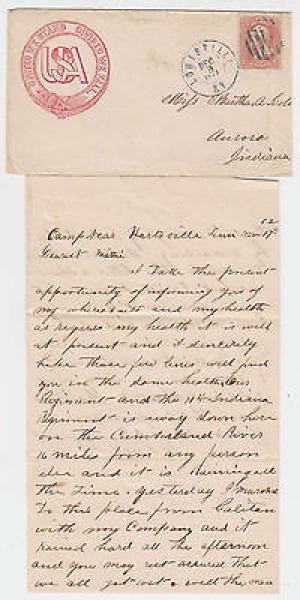 UNITED WE STAND DIVIDED WE FALL
USA
LOUISVILLE
DEC
KY
Miss Martha A.
Aurora
Indiana
62
Camp Near Hartsville Tenn Nov 17th
Dearest
I Take this present
opportunity of informing you of
my whereabouts and my health
as regards my health it is well
at present and it sincerely
hope these few lines will find
you in the same health Our
Regiment and the 114 Indiana
Regiment is away down here
on the Cumberland River
16 miles from any person
else and it is raining all
the Time. yesterday I Marched
To this place from
with my Company and it
rained hard all the afternoon
and you may rest assured that
we all got wet